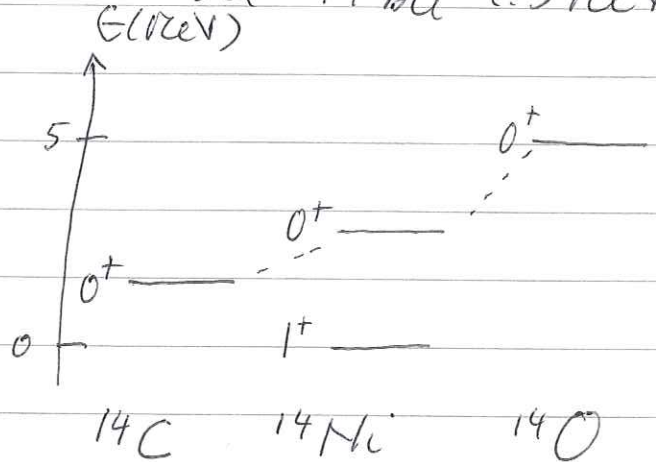 E(MeV)
5
0⁺
0⁺
0⁺
0
1⁺
¹⁴C ¹⁴Ni ¹⁴O